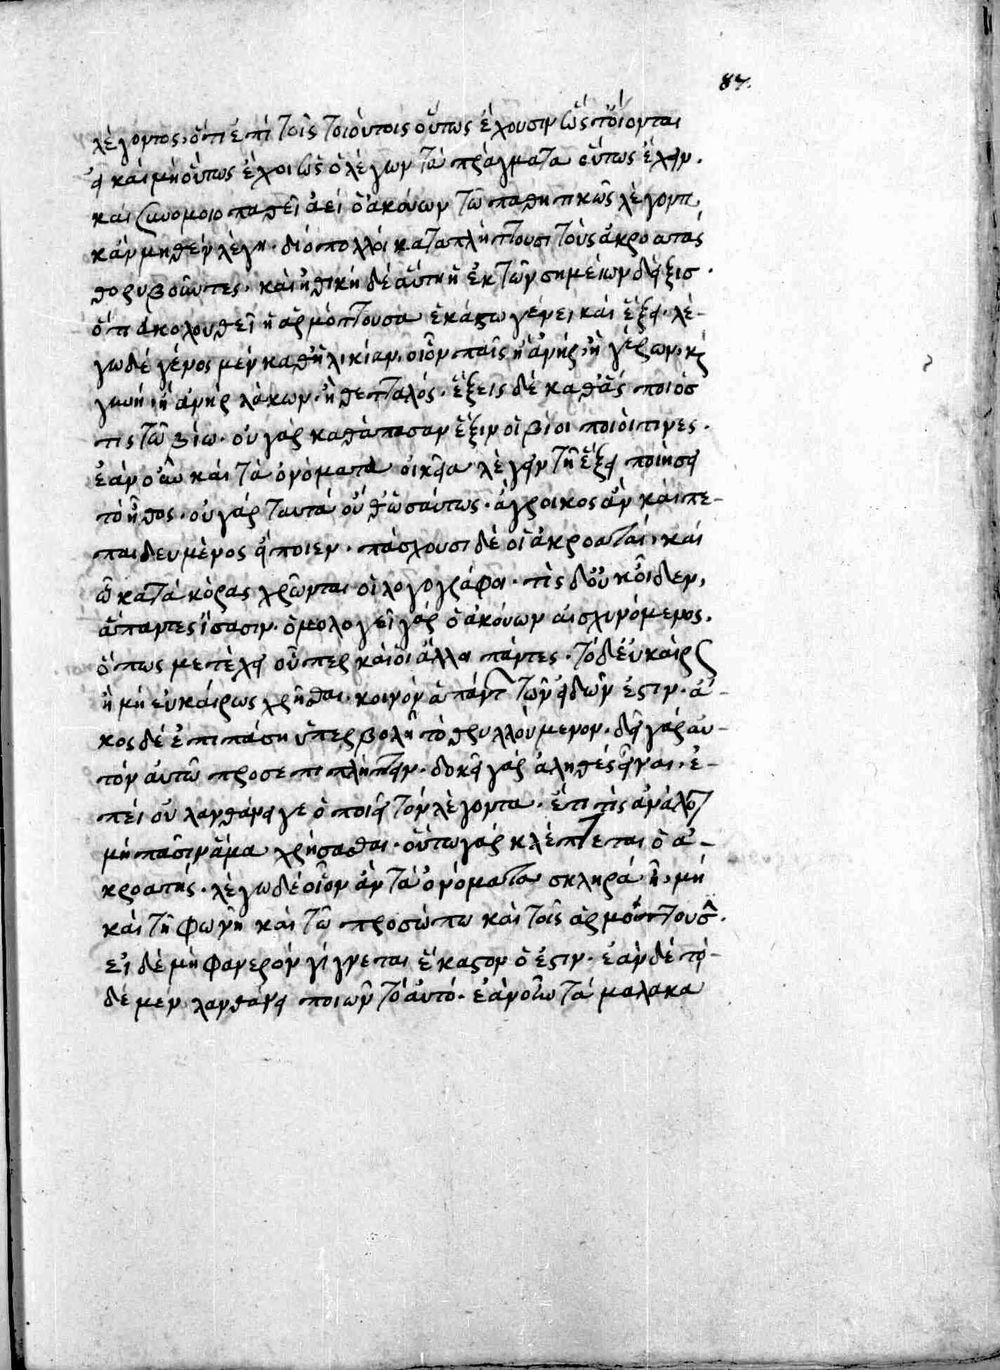 87.
λέγοντος, ὅτι ἐπὶ τοῖς τοιούτοις οὕτως ἔχουσιν ὥστ' οἴονται
εἰ καὶ μὴ οὕτως ἔχοι ὡς ὁ λέγων τὰ πράγματα οὕτως ἔχειν.
καὶ συνομοιοπαθεῖ ἀεὶ ὁ ἀκούων τῶ παθητικῶς λέγοντι,
κἂν μηθὲν λέγη. διὸ πολλοὶ καταπλήττουσι τοὺς ἀκροατὰς
θορυβοῦντες. καὶ ἠθικὴ δὲ αὕτη ἡ ἐκ τῶν σημείων δεῖξισ.
ὅτι ἀκολουθεῖ ἡ ἁρμόττουσα ἑκάστω γένει καὶ ἕξει. λέ-
γω δὲ γένος μὲν καθ' ἡλικίαν, οἷον παῖς ἢ ἀνὴρ, ἢ γέρων, κὶ
γυνὴ, ἢ ἀνὴρ λάκων. ἢ θετταλός. ἕξεις δὲ καθ' ἃς ποιόσ
τις τῶ βίω. οὐ γὰρ καθ' ἅπασαν ἕξιν οἱ βίοι ποιοί τινες.
ἐὰν οὖν καὶ τὰ ὀνόματα οἰκεῖα λέγειν τῆ ἕξει ποιήσει
τὸ ἦθος. οὐ γὰρ ταυτὰ οὐθ' ὡσαύτως. ἀγροικος ἂν καὶ πε-
παιδευμένος εἴποιεν. πάσχουσι δὲ οἱ ἀκροαταί, καὶ
ὧ κατὰ κόρας χρῶνται οἱ λογογράφοι. τὶς δ' οὐκ οἶδεν,
ἅπαντες ἴσασιν. ὁμολογεῖ γὰρ ὁ ἀκούων αἰσχυνόμενος.
ὅπως μετέχει οὗπερ καὶ οἱ ἄλλοι πάντες. τὸ δ' εὐκαίρως
ἢ μὴ εὐκαίρως χρῆσθαι. κοινὸν ἁπάντων τῶν εἰδῶν ἐστιν. ἄ-
κος δὲ ἐπὶ πάση ὑπερβολῆ τὸ θρυλλούμενον. δεῖ γὰρ αὐ-
τὸν αὑτῶ προσεπιπλήττειν. δοκεῖ γὰρ ἀληθὲς εἶναι. ἐ-
πεὶ οὐ λανθάνει γε ὁ ποιεῖ τὸν λέγοντα. ἔτι τὶς ἀνάλογον
μὴ πᾶσιν ἅμα χρήσασθαι. οὕτω γὰρ κλέπτεται ὁ ἀ-
κροατής. λέγω δὲ οἷον ἂν τὰ ὀνόματα σκληρὰ ἦ, μὴ
καὶ τῆ φωνῆ καὶ τῶ προσώπω καὶ τοῖς ἁρμόττουσιν.
εἰ δὲ μὴ φανερὸν γίγνεται ἕκαστον ὅ ἐστιν. ἐὰν δὲ τὸ-
δε μεν λανθάνει ποιῶν τὸ αὐτό. ἐὰν οὖν τὰ μαλακα